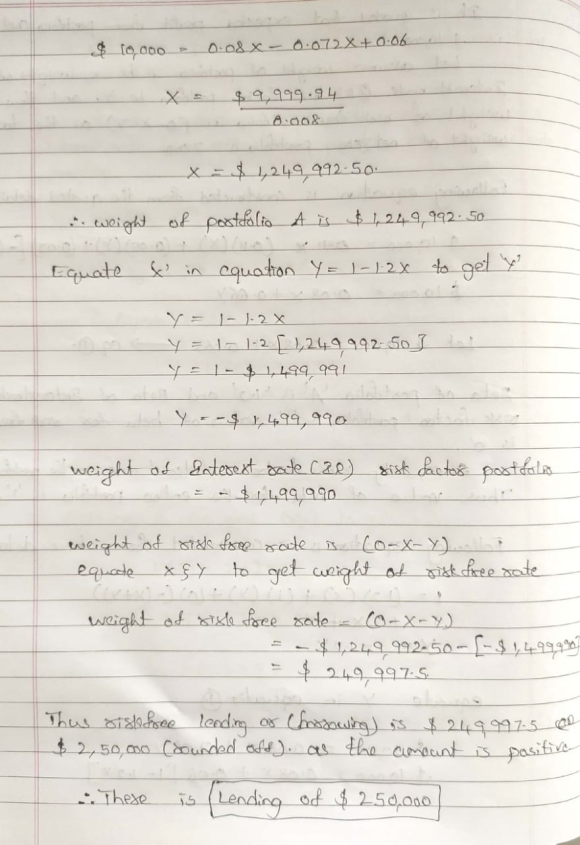 $ 10,000 = 0.08x - 0.072x + 0.06
X = $ 9,999.94
0.008
X = $ 1,249,992.50.
∴ weight of portfolio A is $ 1,249,992.50
Equate 'x' in equation Y = 1-1.2x to get 'Y'
Y = 1-1.2x
Y = 1-1.2 [1,249,992.50]
Y = 1- $ 1,499,991
Y = -$ 1,499,990
weight of Interest rate (IR) risk factor portfolio
= - $ 1,499,990
weight of risk free rate is (0-X-Y)
equate X & Y to get weight of risk free rate
weight of risk free rate = (0-X-Y)
= - $ 1,249,992.50 - [-$ 1,499,990]
= $ 249,997.5
Thus risk free lending or (borrowing) is $ 249,997.5 or
$ 2,50,000 (rounded off). as the amount is positive
∴ There is Lending of $ 250,000